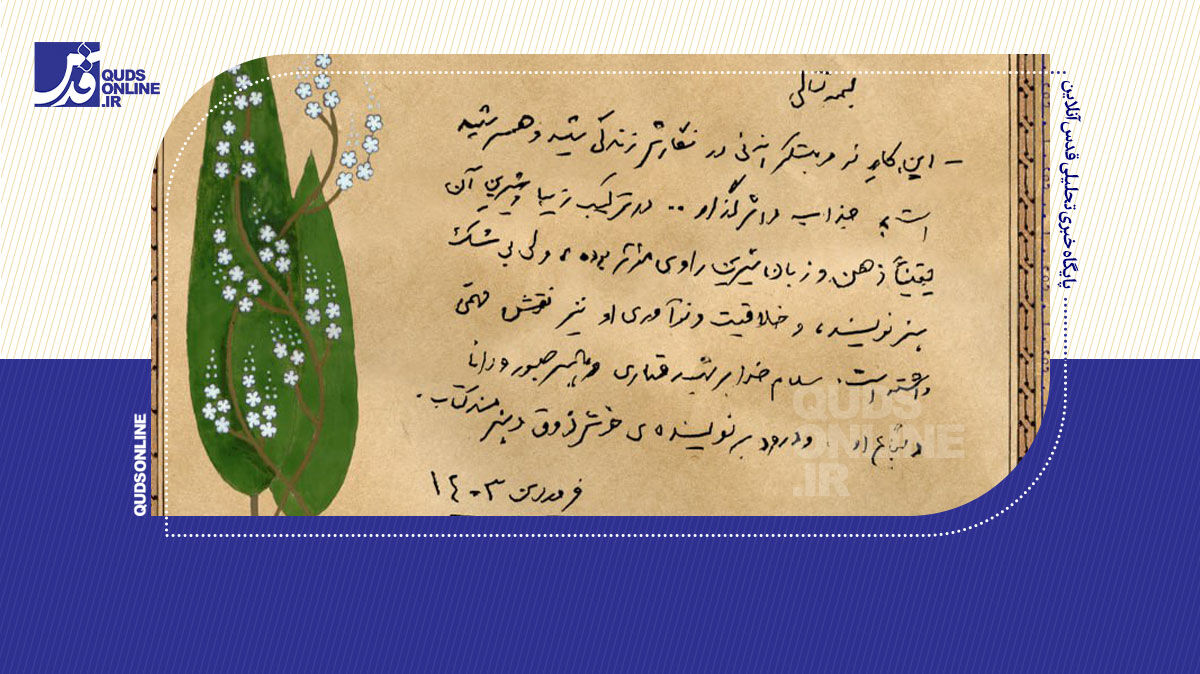 قدس
QUDS
ONLINE
.IR
پایگاه خبری تحلیلی قدس آنلاین
بسمه تعالی
- این، کار نو و مبتکرانه‌ئی در نگارش زندگی شهید و همسر شهید
است؛ جذاب و اثرگذار .. در ترکیب زیبا و شیرین آن
یقیناً ذهن و زبان شیرین راوی مؤثر بوده، ولی بی شک
هنر نویسنده، و خلاقیت و نوآوری او نیز نقش مهمی
داشته است. سلام خدا بر شهید قهاری و همسر صبور و دانا
و شجاع او. و درود بر نویسنده ی خوش ذوق و هنرمند کتاب.
فروردین ۱۴۰۳
QUDS
ONLINE
.IR
QUDSONLINE